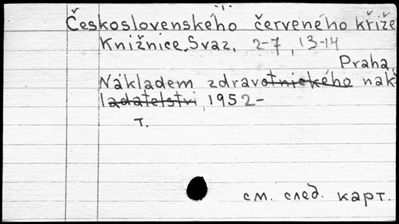 Československého červeného kříže
Knižnice. Svaz. 2-7, 13-14
Praha,
Nákladem zdravotnického nak-
ladatelstvi, 1952-
т.
см. след. карт.